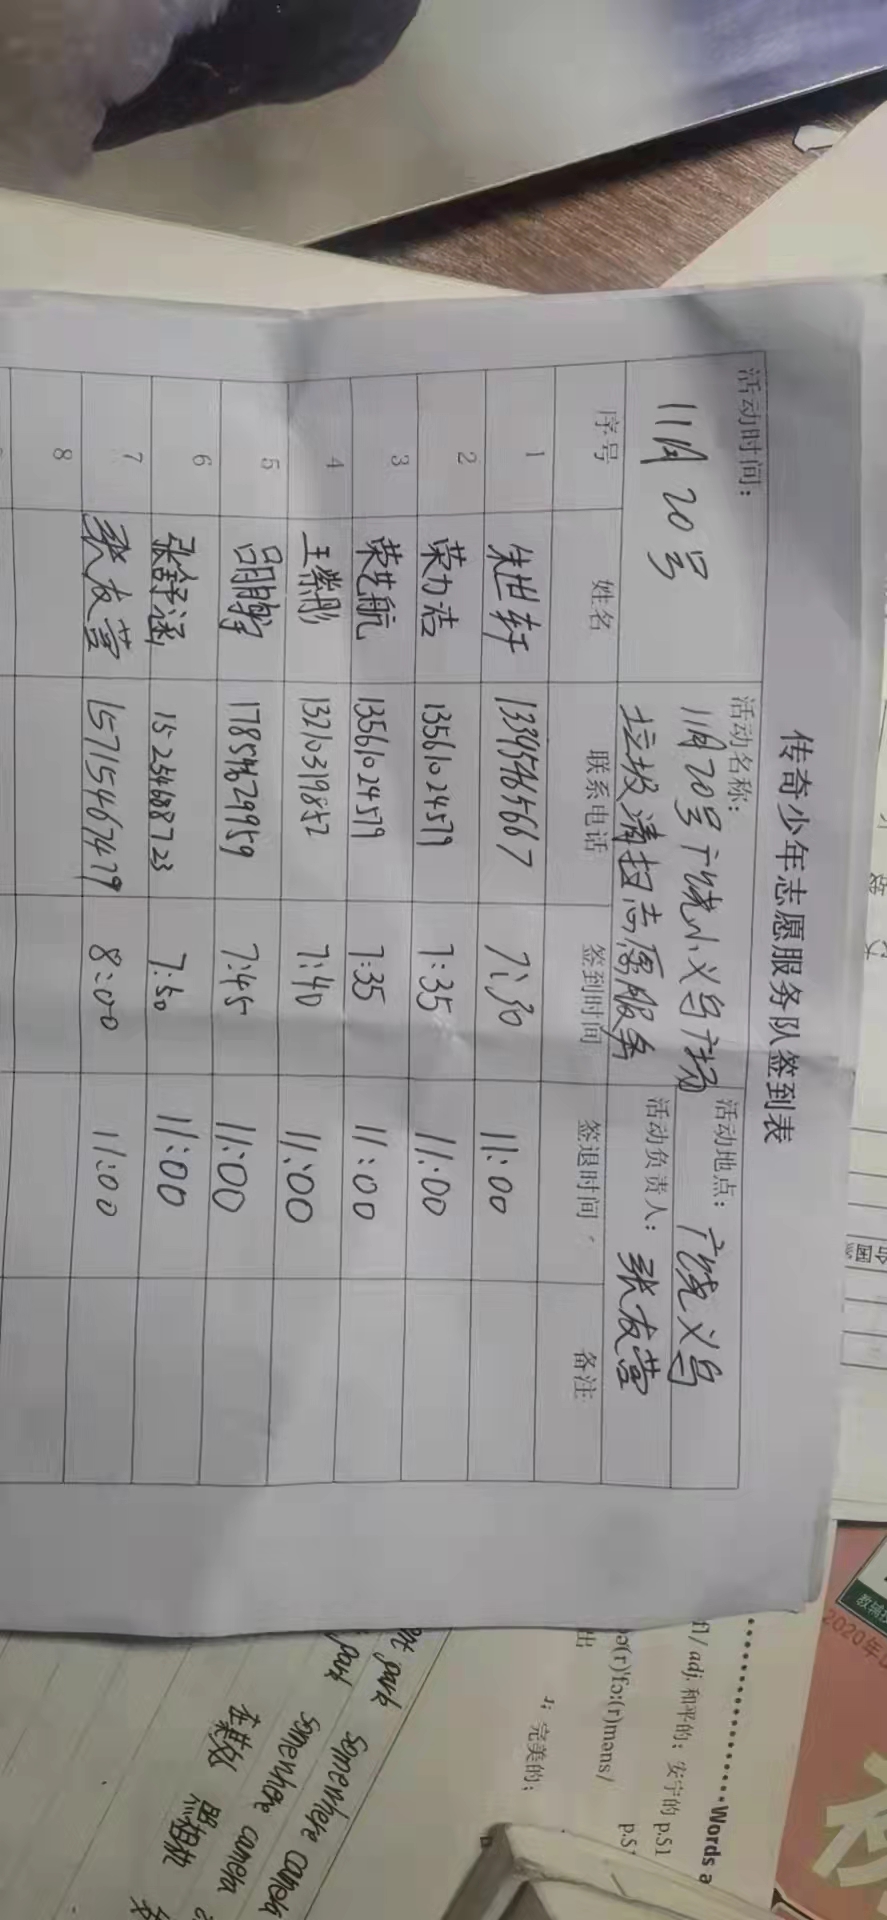 传奇少年志愿服务队签到表
活动时间：
11月20号
活动名称：
11月20号广饶小义乌广场
垃圾清扫志愿服务
活动地点： 广饶义乌
活动负责人： 张友营
序号 姓名 联系电话 签到时间 签退时间 备注
1 朱世轩 13395465667 7:30 11:00
2 荣力洁 13561024579 7:35 11:00
3 荣艺航 13561024579 7:35 11:00
4 王紫彤 13210319852 7:40 11:00
5 17854629959 7:45 11:00
6 张舒涵 15254688723 7:50 11:00
7 张友营 15715467479 8:00 11:00
8
Words a
/ adj. 和平的；安宁的 p.51
(r)'fɔ:(r)məns/
p.5
完美的；
出
park somewhere camera
park somewhere camera
在某处 照相机
2020年
教辅